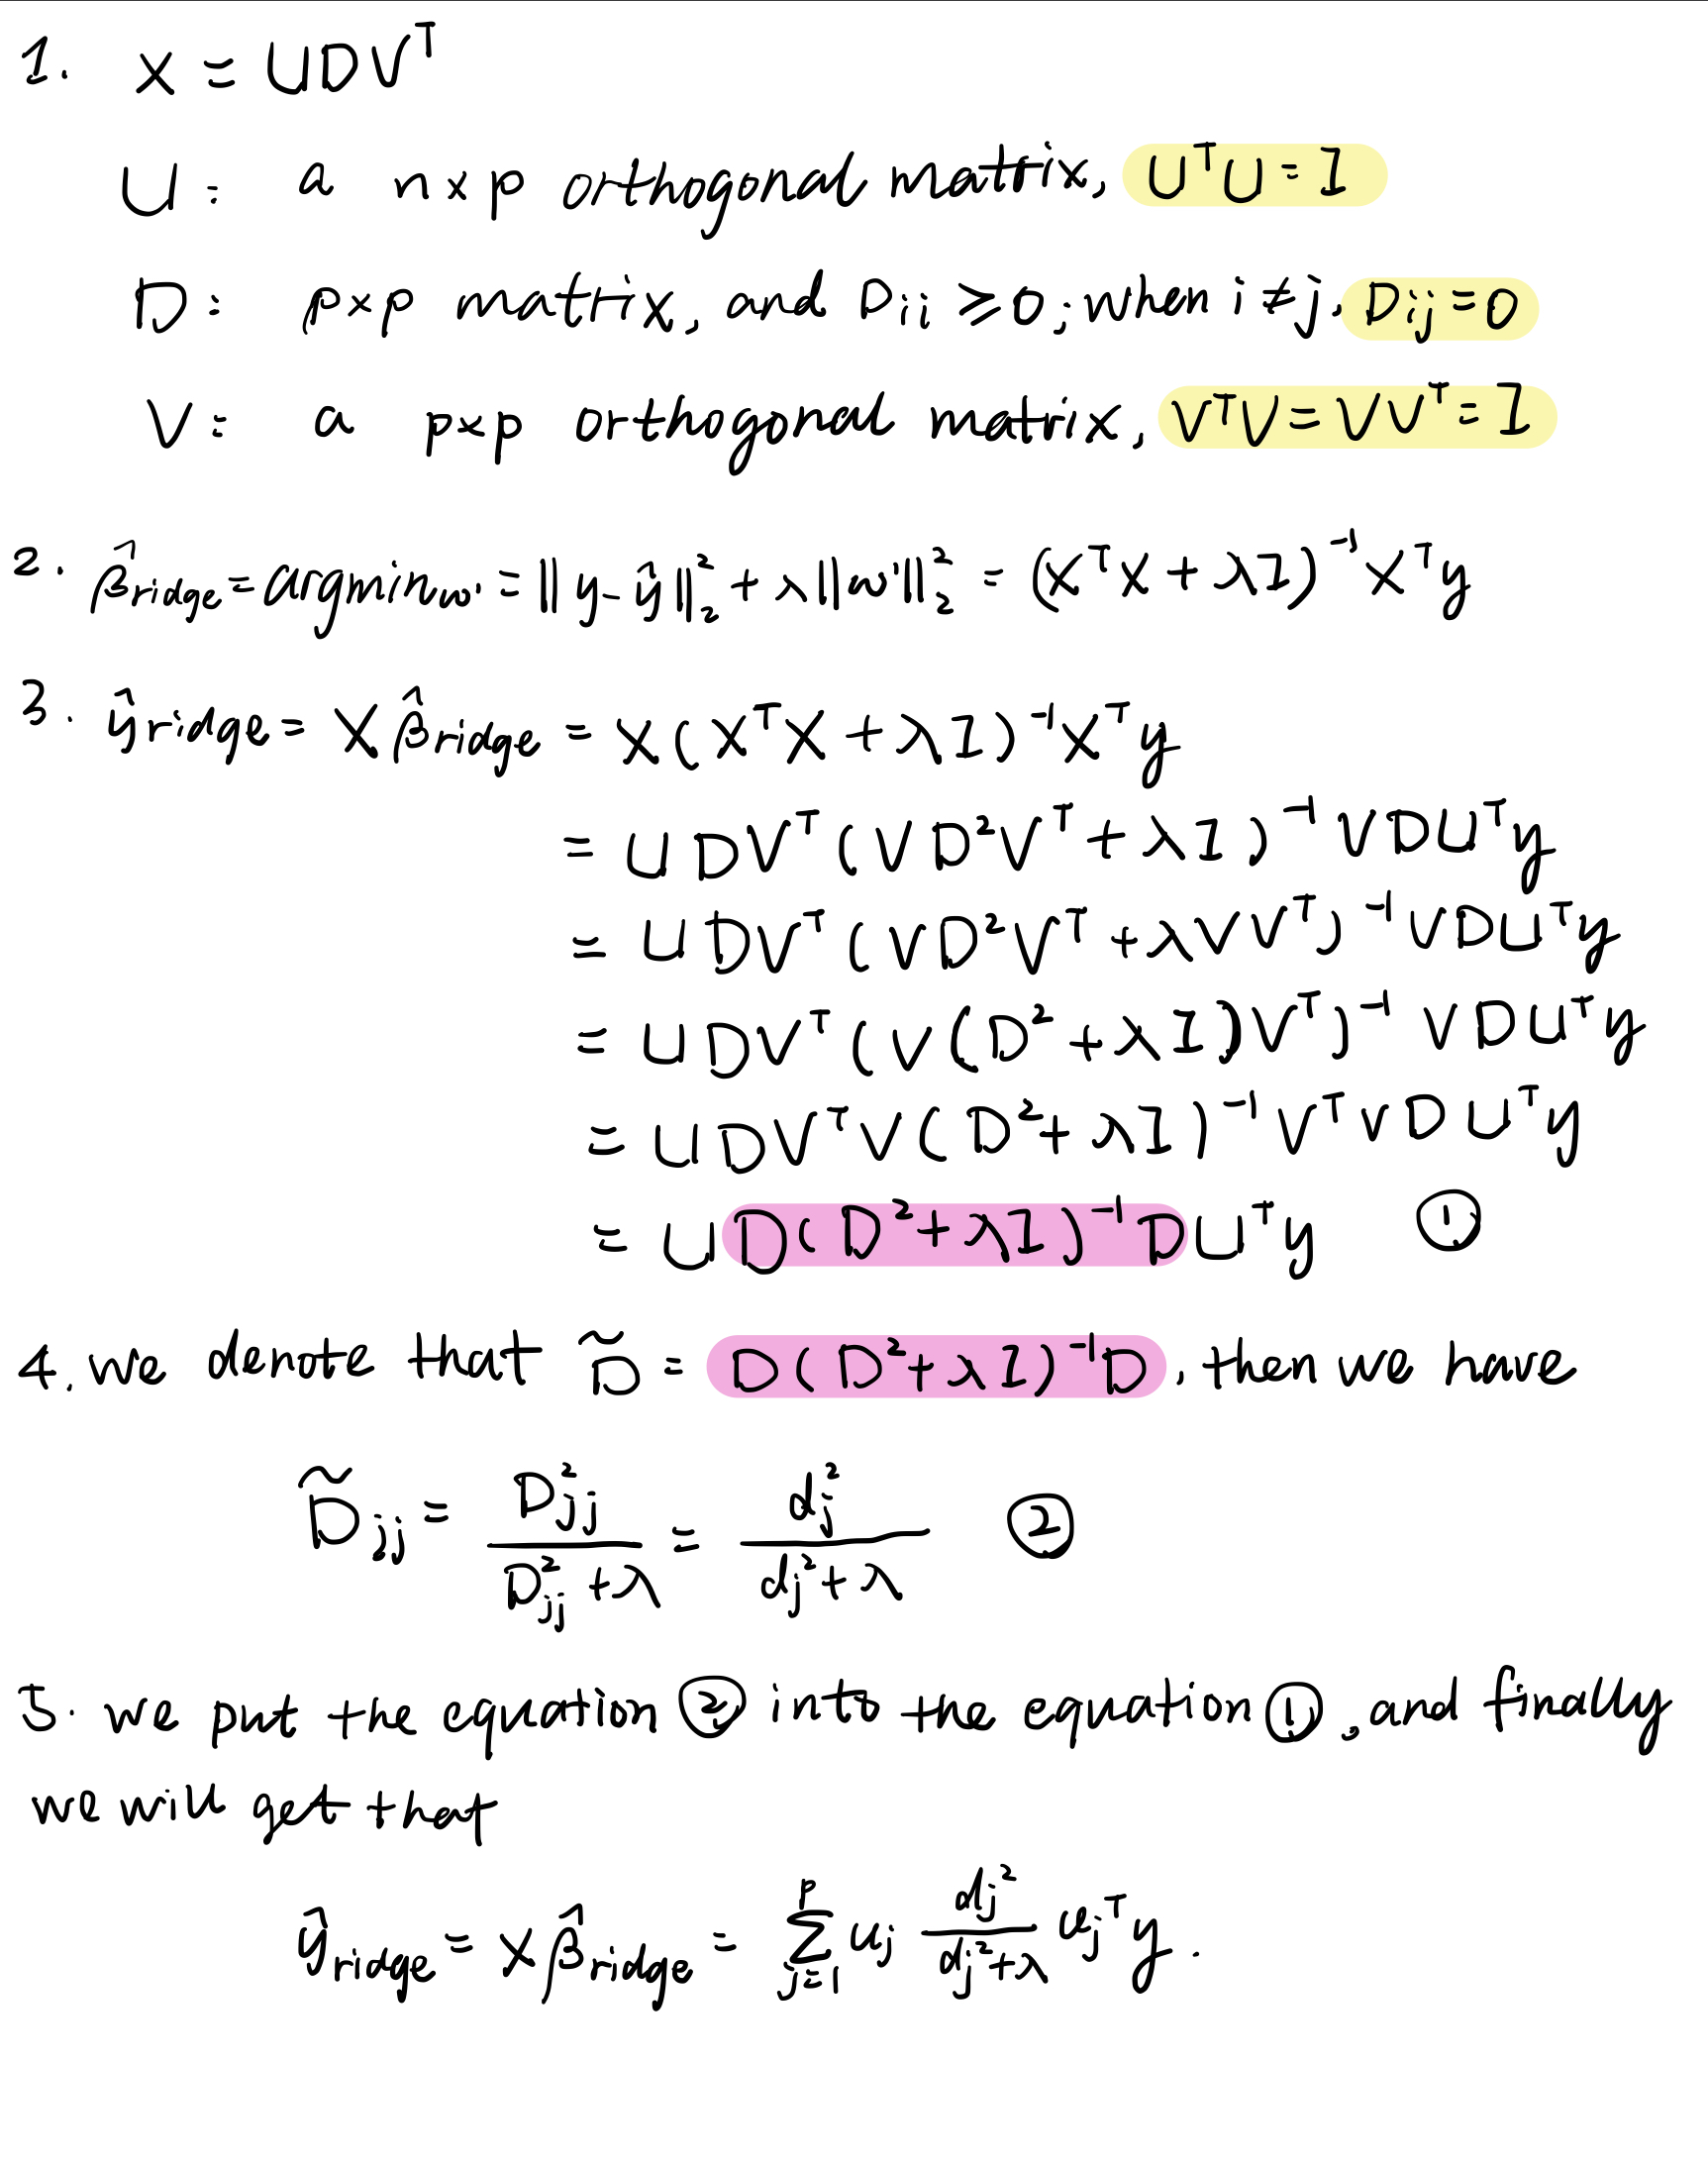 1. X = UDVᵀ
U: a n×p orthogonal matrix, UᵀU = I
D: p×p matrix, and Dᵢᵢ ⩾ 0; when i ≠ j, Dᵢⱼ = 0
V: a p×p orthogonal matrix, VᵀV = VVᵀ = I
2. β̂_ridge = argmin_w' = ||y - ŷ||₂² + λ||w'||₂² = (XᵀX + λI)⁻¹Xᵀy
3. ŷ_ridge = Xβ̂_ridge = X(XᵀX + λI)⁻¹Xᵀy
= UDVᵀ(VD²Vᵀ + λI)⁻¹VDUᵀy
= UDVᵀ(VD²Vᵀ + λVVᵀ)⁻¹VDUᵀy
= UDVᵀ(V(D² + λI)Vᵀ)⁻¹ VDUᵀy
= UDVᵀV(D² + λI)⁻¹VᵀVDUᵀy
= UD(D² + λI)⁻¹DUᵀy ①
4. we denote that D̃ = D(D² + λI)⁻¹D, then we have
D̃ⱼⱼ = D²ⱼⱼ / (D²ⱼⱼ + λ) = dⱼ² / (dⱼ² + λ) ②
5. we put the equation ② into the equation ①, and finally
we will get that
ŷ_ridge = Xβ̂_ridge = Σ_{j=1}^{p} uⱼ dⱼ² / (dⱼ² + λ) uⱼᵀy.